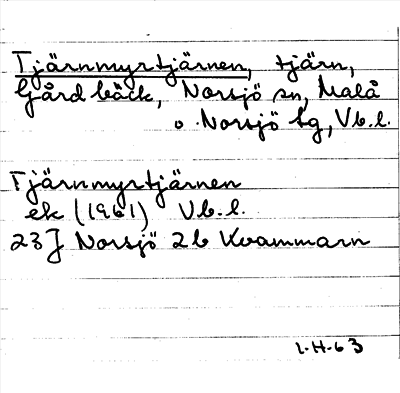 Tjärnmyrtjärnen, tjärn,
Gårdbäck, Norsjö sn, Malå
o. Norsjö tg, Vb.l.
Tjärnmyrtjärnen
ek (1961) Vb.l.
23J Norsjö 2b Kvammarn
1.H.63